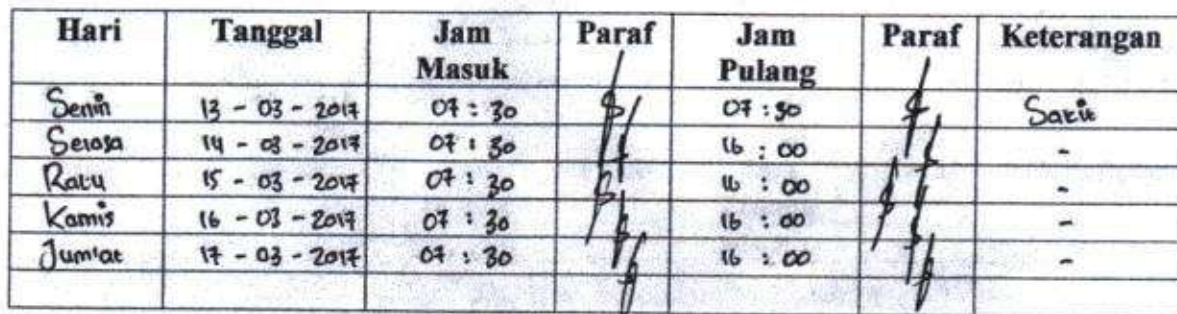 Hari Tanggal Jam Masuk Paraf Jam Pulang Paraf Keterangan
Senin 13 - 03 - 2017 07 : 30 07 : 30 Sakit
Selasa 14 - 03 - 2017 07 : 30 16 : 00 -
Rabu 15 - 03 - 2017 07 : 30 16 : 00 -
Kamis 16 - 03 - 2017 07 : 30 16 : 00 -
Jum'at 17 - 03 - 2017 07 : 30 16 : 00 -